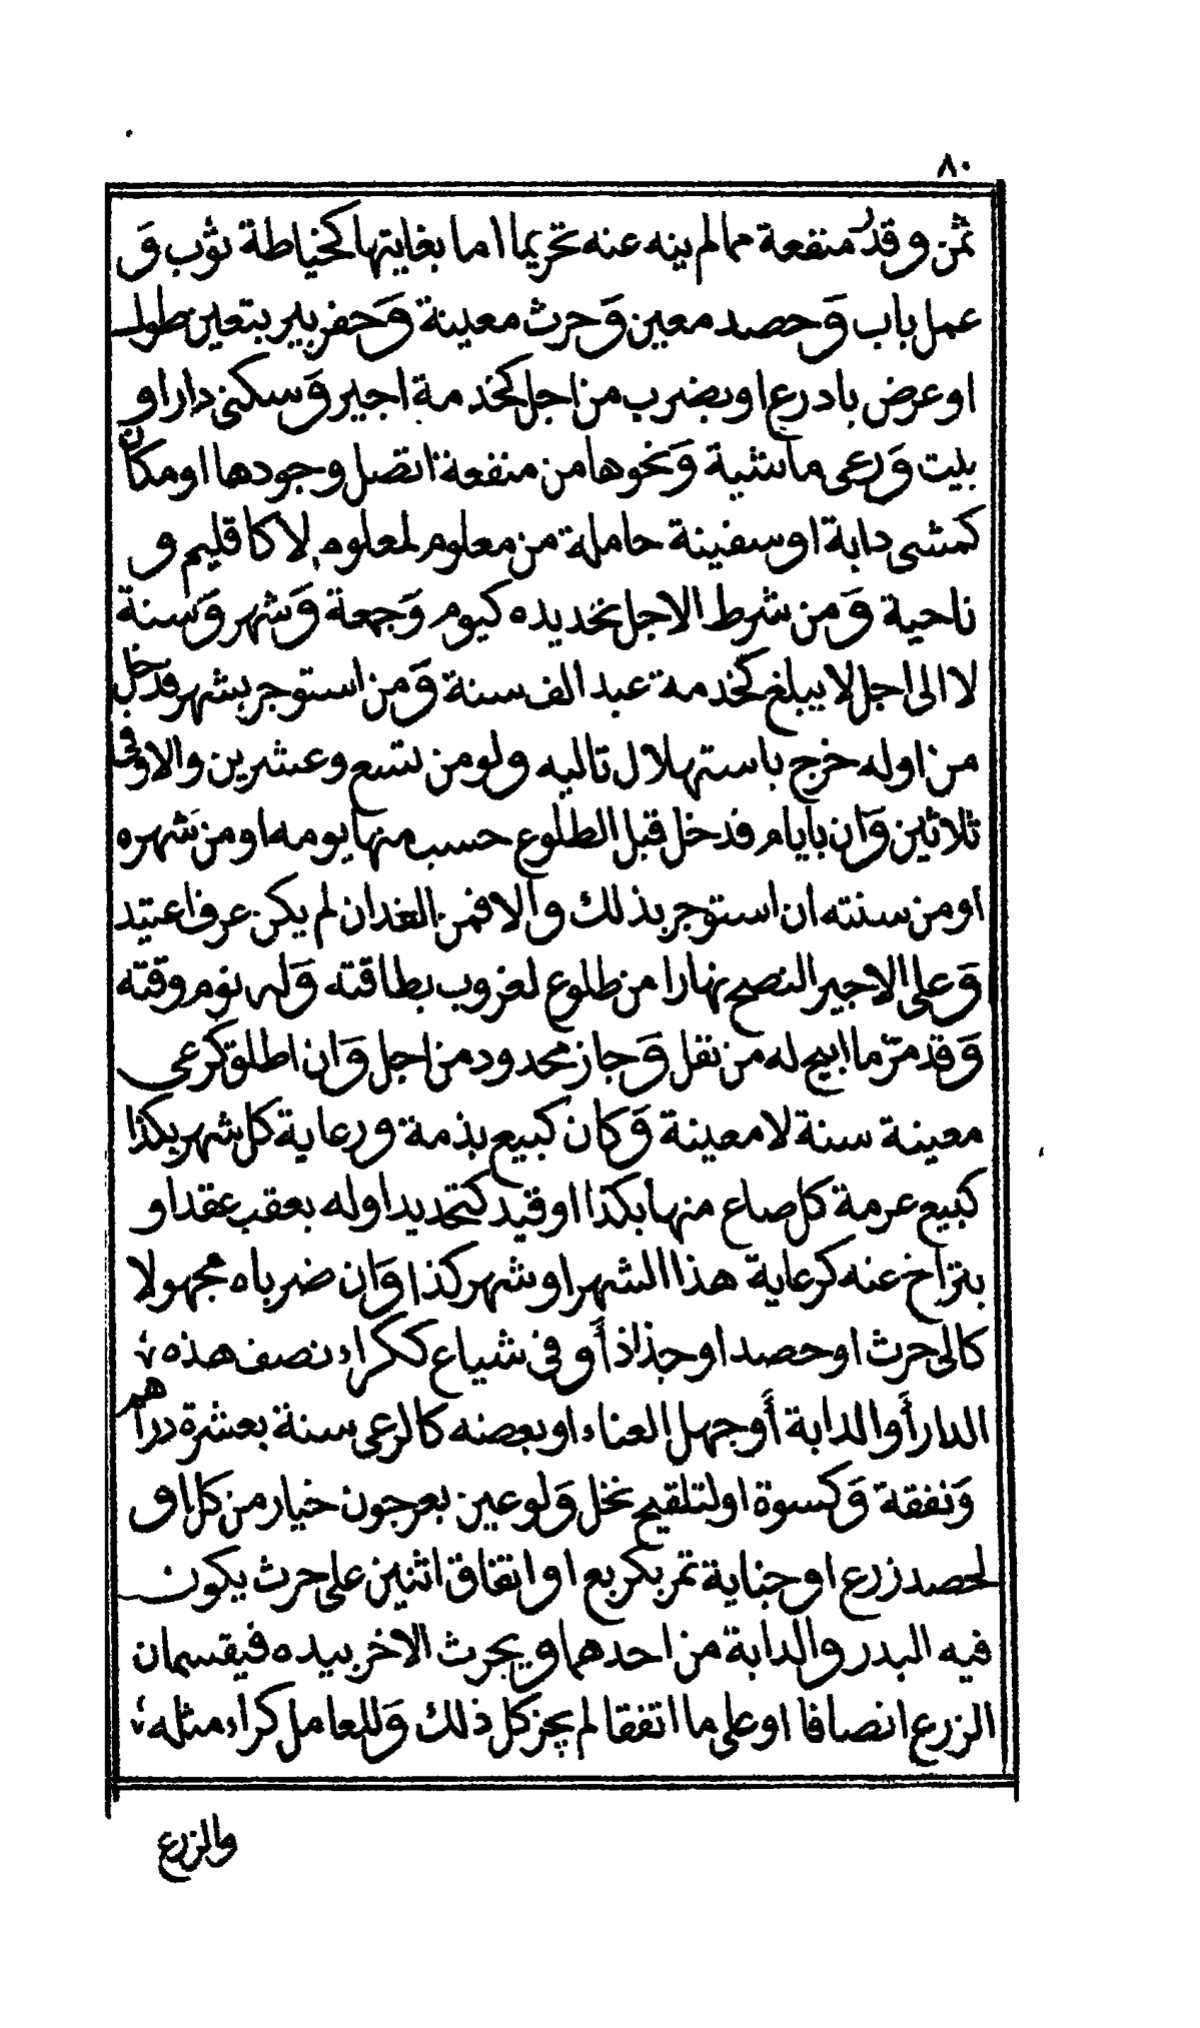 ٨٠
ثمن وقدر منفعة مما لم ينه عنه تحريما اما بغايتها كخياطة ثوب و
عمل باب وحصد معين وحرث معينة وحفر بير بتعين طول
او عرض باذرع او بضرب من اجل كخدمة اجير وسكنى دار او
بيت ورعى ماشية ونحوها من منفعة اتصل وجودها او مكان
كمشى دابة او سفينة حاملة من معلوم لمعلوم لا كاقليم و
ناحية ومن شرط الاجل تحديده كيوم وجمعة وشهر وسنة
لا الى اجل لا يبلغ كخدمة عبد الف سنة ومن استوجر بشهر فدخل
من اوله خرج باستهلال تاليه ولو من تسع وعشرين والا وفى
ثلاثين وان بايام فدخل قبل الطلوع حسب منها يومه او من شهره
او من سنته ان استوجر بذلك والا فمن الغد ان لم يكن عرف اعتيد
وعلى الاجير النصح نهارا من طلوع لغروب بطاقته وله نوم وقته
وقد مرّ ما ابيح له من نفل وجاز محدود من اجل وان اطلق كرعى
معينة سنة لا معينة وكان كبيع بذمة ورعاية كل شهر بكذا
كبيع عرمة كل صاع منها بكذا او قيد كتحديد اوله بعقب عقد او
بتراخ عنه كرعاية هذا الشهر او شهر كذا وان ضرباه مجهولا
كالى حرث او حصد او جذاذ أو فى شياع ككراء نصف هذه
الدار أو الدابة أو جهل العناء او بعضه كالرعى سنة بعشرة دراهم
ونفقة وكسوة او لتلقيح نخل ولو عين بعرجون خيار من كل او
لحصد زرع او جناية تمر بكربع او اتفاق اثنين على حرث يكون
فيه البدر والدابة من احدهما ويحرث الاخر بيده فيقسمان
الزرع انصافا او على ما اتفقا لم يجز كل ذلك وللعامل كراء مثله
والزرع